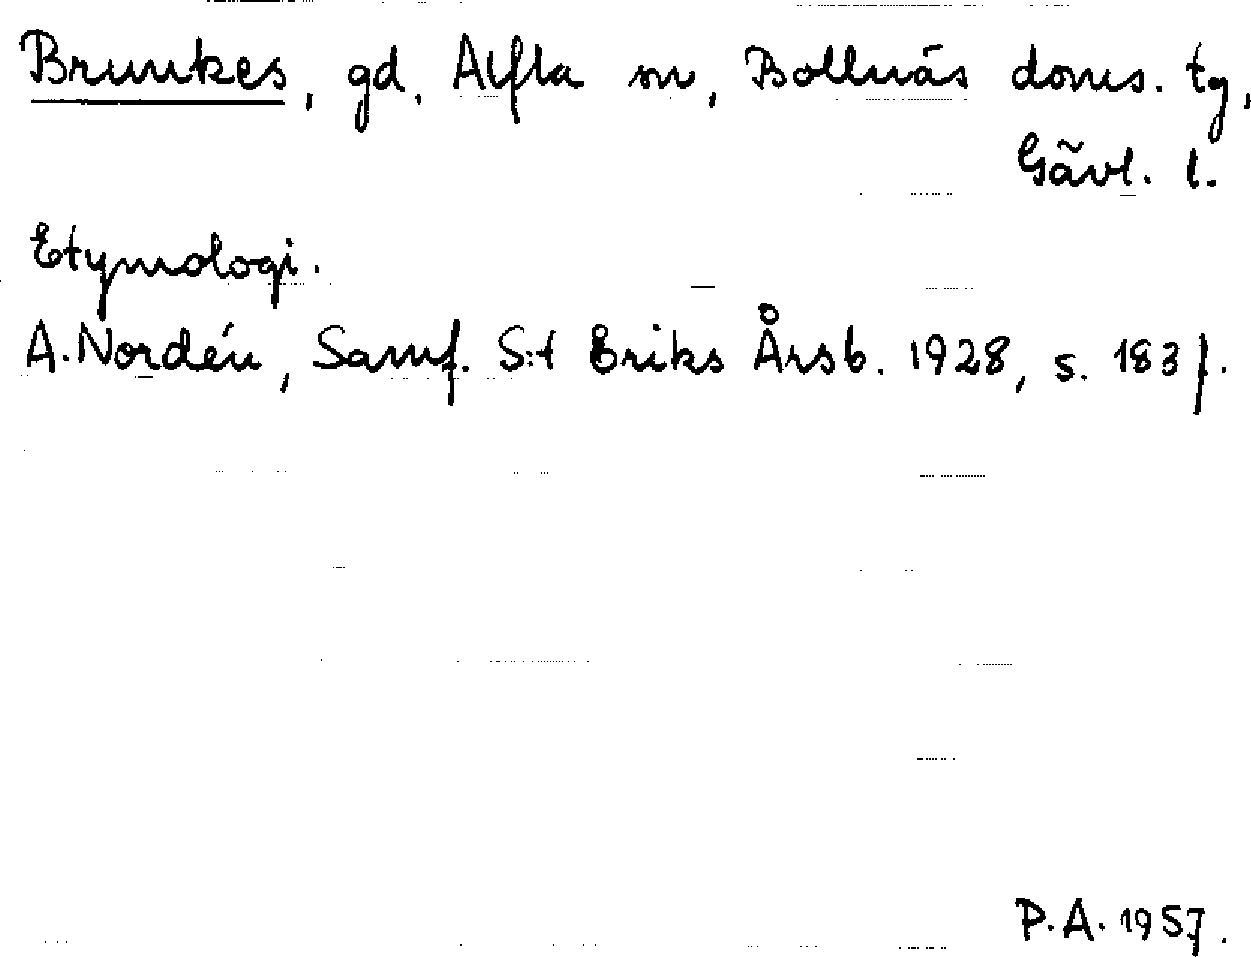 Brunkes, gd, Alfta sn, Bollnäs doms. tg,
Gävl. l.
Etymologi.
A. Nordén, Samf. S:t Eriks Årsb. 1928, s. 183 f.
P.A. 1957.